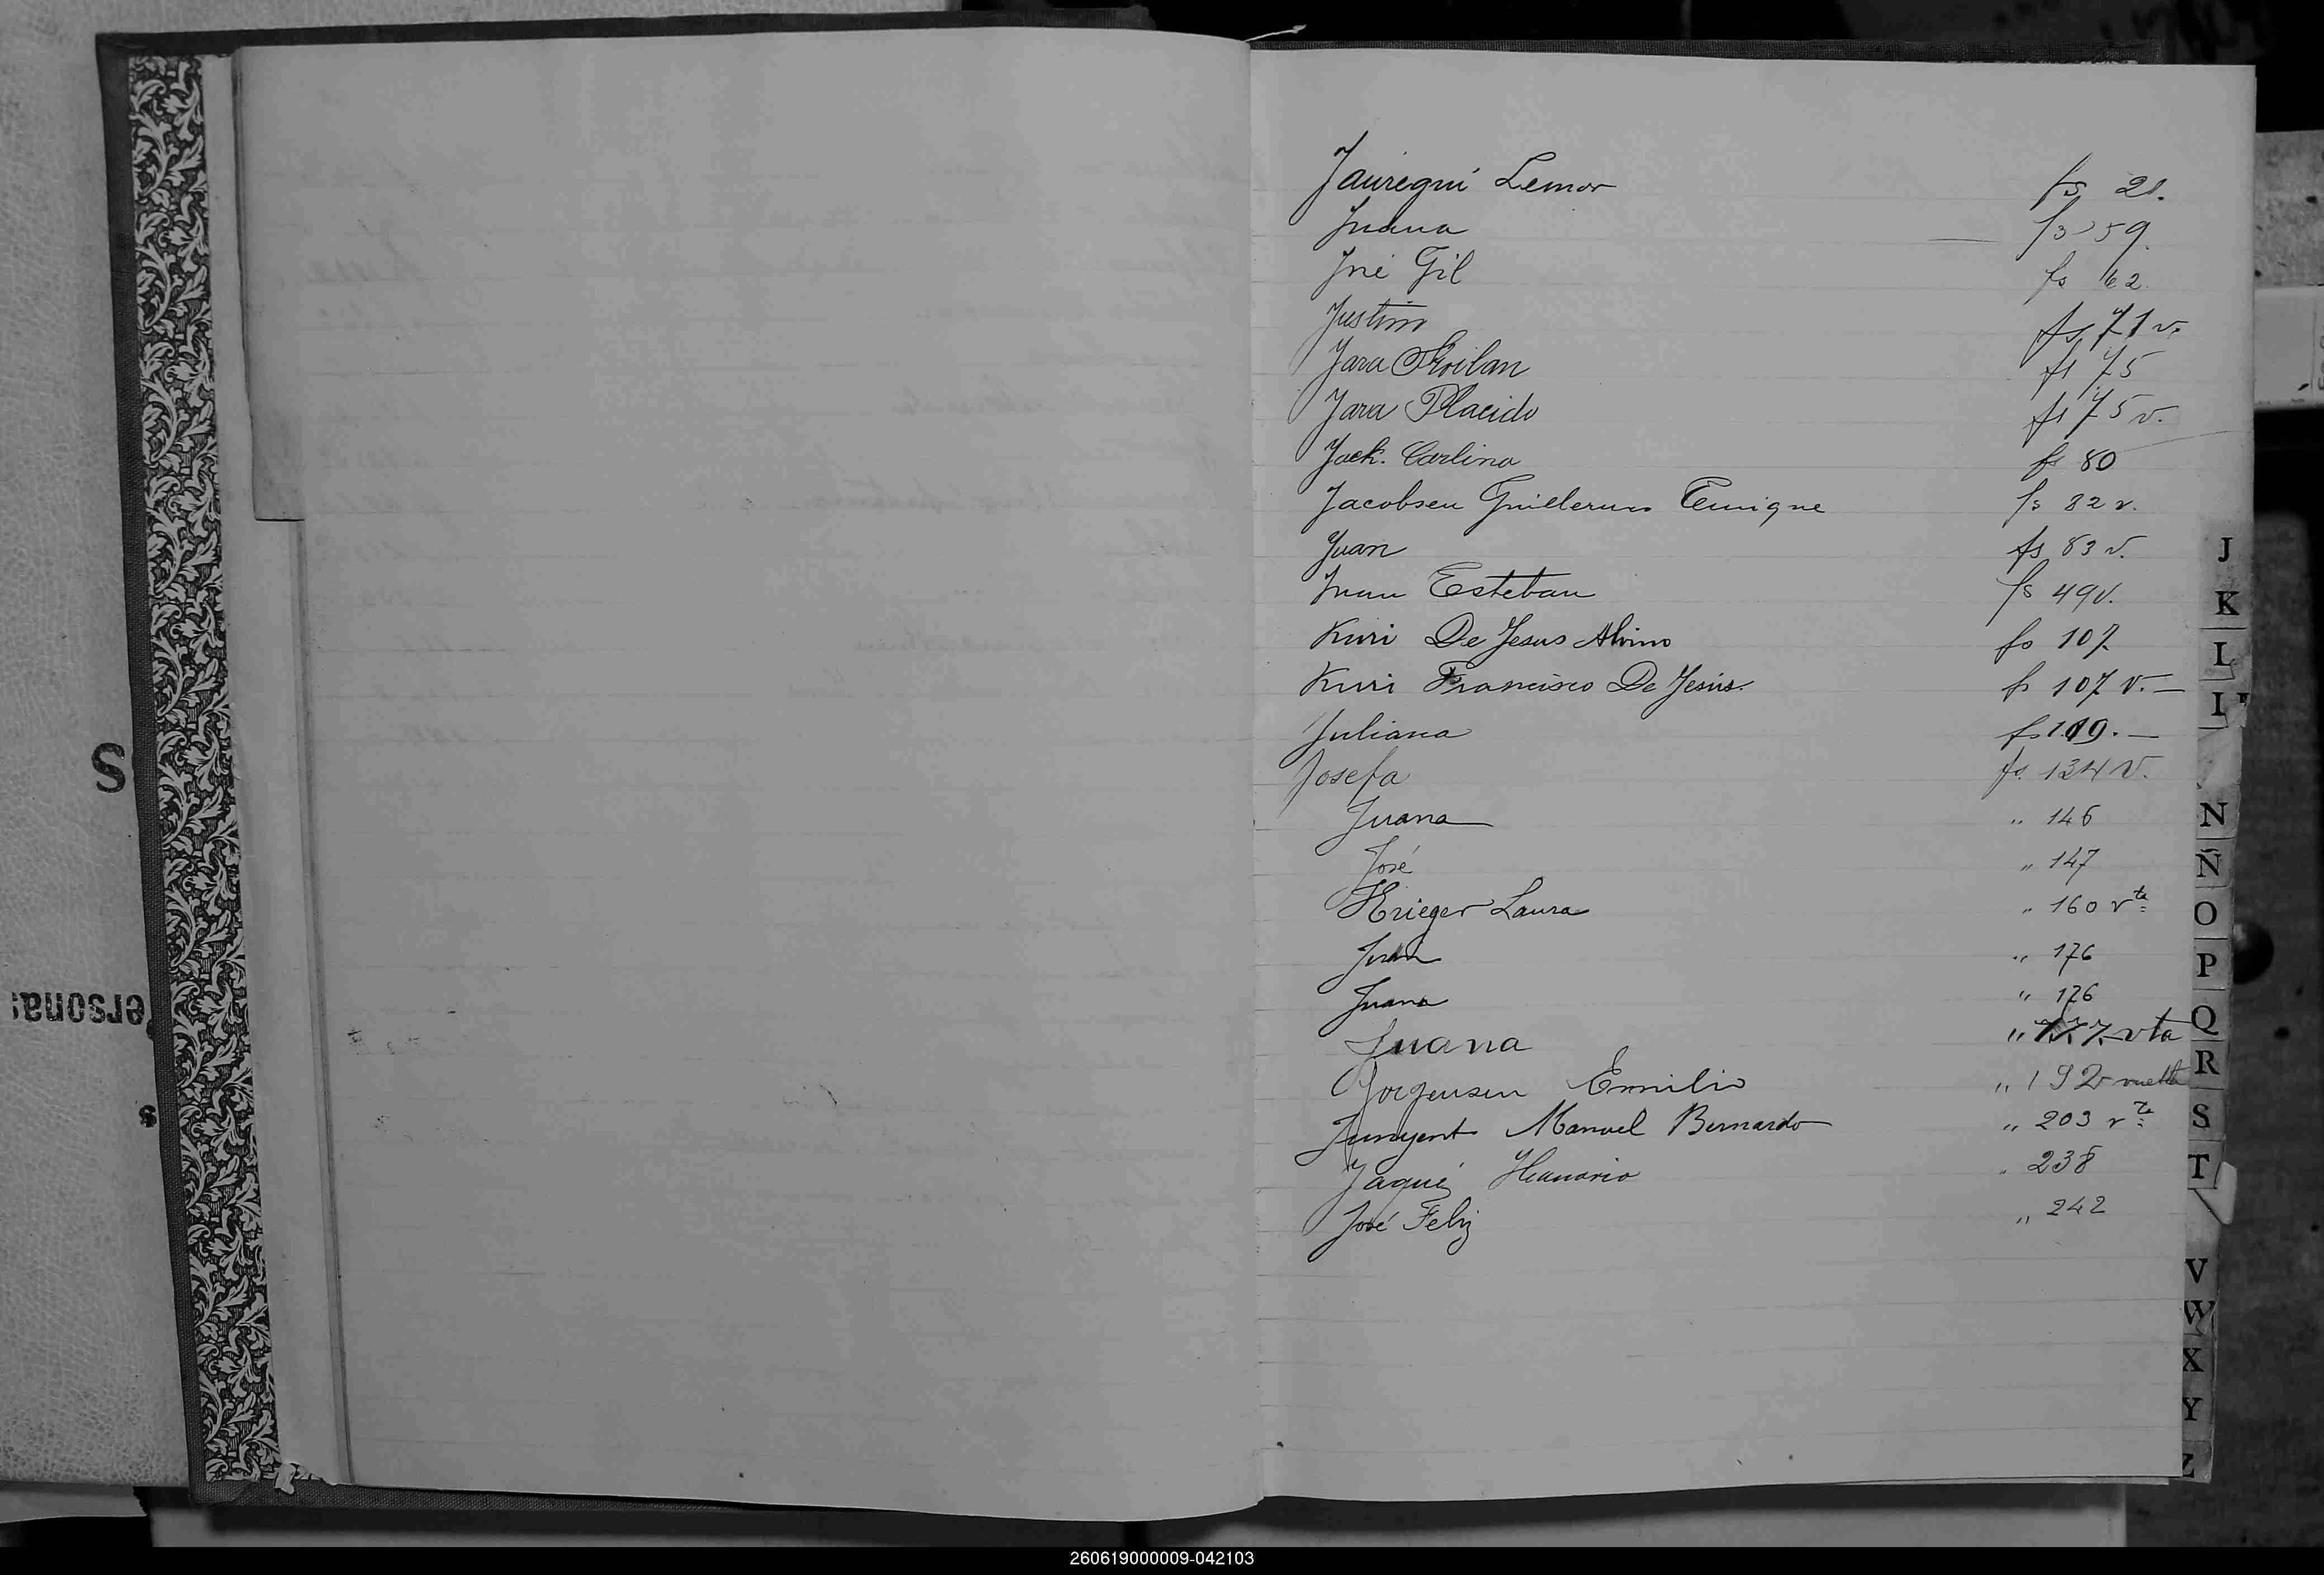 Jauregui Lemor fs 21.
Juana fs 59.
José Gil fs 62
Justino fs 71 v.
Jara Froilan fs 75
Jara Placido fs 75 v.
Jack. Carlina fs 80
Jacobsen Guillermo Enrique fs 82 v.
Juan fs 83 v.
Juan Esteban fs 49 v.
Kuri De Jesus Alvino fs 107
Kuri Francisco De Jesús. fs 107 v. —
Juliana fs 119. —
Josefa fs. 134 v.
Juana „ 146
José „ 147
Krieger Laura „ 160 vta
Juan „ 176
Juana „ 176
Juana „ 177 vta
Jorgensen Emilio „ 192 vuelta
Junyent Manuel Bernardo „ 203 vta
Jaqué „ 238
José Feliz „ 242
J
K
L
N
Ñ
O
P
Q
R
S
T
V
W
X
Y
Z
S
ersona
s
260619000009-042103